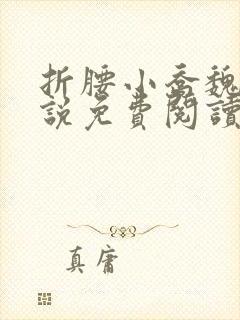 折腰小喬魏
說免費閱讀
真庸